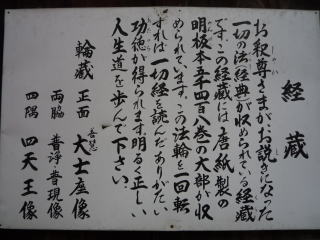 経蔵
お釈尊さまがお説きになった
一切の法(経典)が収められている経蔵
です。この経蔵には唐紙製の
明板本五千四百八巻の大部が収
められています。この法輪を一回転
すれば一切経を読んだありがたい
功徳が得られます。明るく正しい
人生道を歩んで下さい。
輪蔵 正面 大士座像
両脇 普浄 普現像
四隅 四天王像